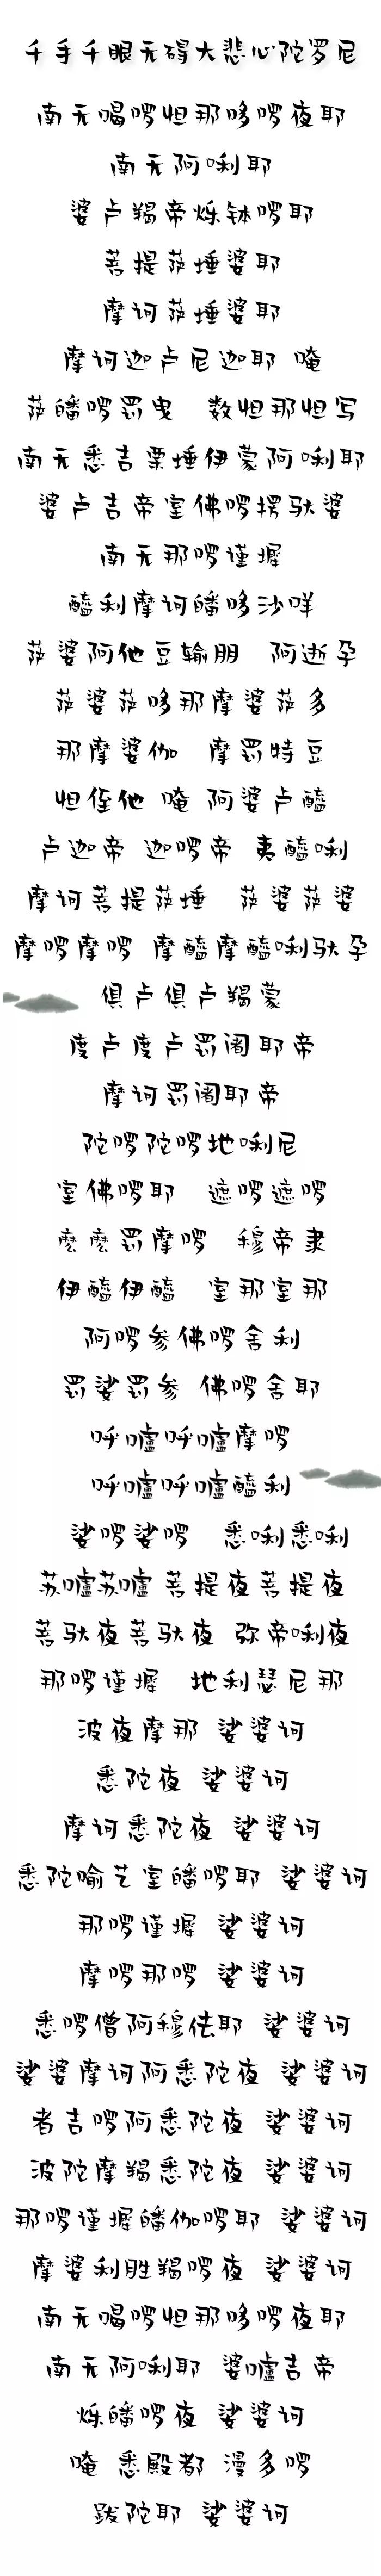 千手千眼无碍大悲心陀罗尼
南无喝啰怛那哆啰夜耶
南无阿唎耶
婆卢羯帝烁钵啰耶
菩提萨埵婆耶
摩诃萨埵婆耶
摩诃迦卢尼迦耶 唵
萨皤啰罚曳 数怛那怛写
南无悉吉栗埵伊蒙阿唎耶
婆卢吉帝室佛啰楞驮婆
南无那啰谨墀
醯利摩诃皤哆沙咩
萨婆阿他豆输朋 阿逝孕
萨婆萨哆那摩婆萨多
那摩婆伽 摩罚特豆
怛侄他 唵 阿婆卢醯
卢迦帝 迦啰帝 夷醯唎
摩诃菩提萨埵 萨婆萨婆
摩啰摩啰 摩醯摩醯唎驮孕
俱卢俱卢羯蒙
度卢度卢罚阇耶帝
摩诃罚阇耶帝
陀啰陀啰地唎尼
室佛啰耶 遮啰遮啰
麽麽罚摩啰 穆帝隶
伊醯伊醯 室那室那
阿啰参佛啰舍利
罚娑罚参 佛啰舍耶
呼嚧呼嚧摩啰
呼嚧呼嚧醯利
娑啰娑啰 悉唎悉唎
苏嚧苏嚧 菩提夜菩提夜
菩驮夜菩驮夜 弥帝唎夜
那啰谨墀 地利瑟尼那
波夜摩那 娑婆诃
悉陀夜 娑婆诃
摩诃悉陀夜 娑婆诃
悉陀喻艺室皤啰耶 娑婆诃
那啰谨墀 娑婆诃
摩啰那啰 娑婆诃
悉啰僧阿穆佉耶 娑婆诃
娑婆摩诃阿悉陀夜 娑婆诃
者吉啰阿悉陀夜 娑婆诃
波陀摩羯悉陀夜 娑婆诃
那啰谨墀皤伽啰耶 娑婆诃
摩婆利胜羯啰夜 娑婆诃
南无喝啰怛那哆啰夜耶
南无阿唎耶 婆嚧吉帝
烁皤啰夜 娑婆诃
唵 悉殿都 漫多啰
跋陀耶 娑婆诃